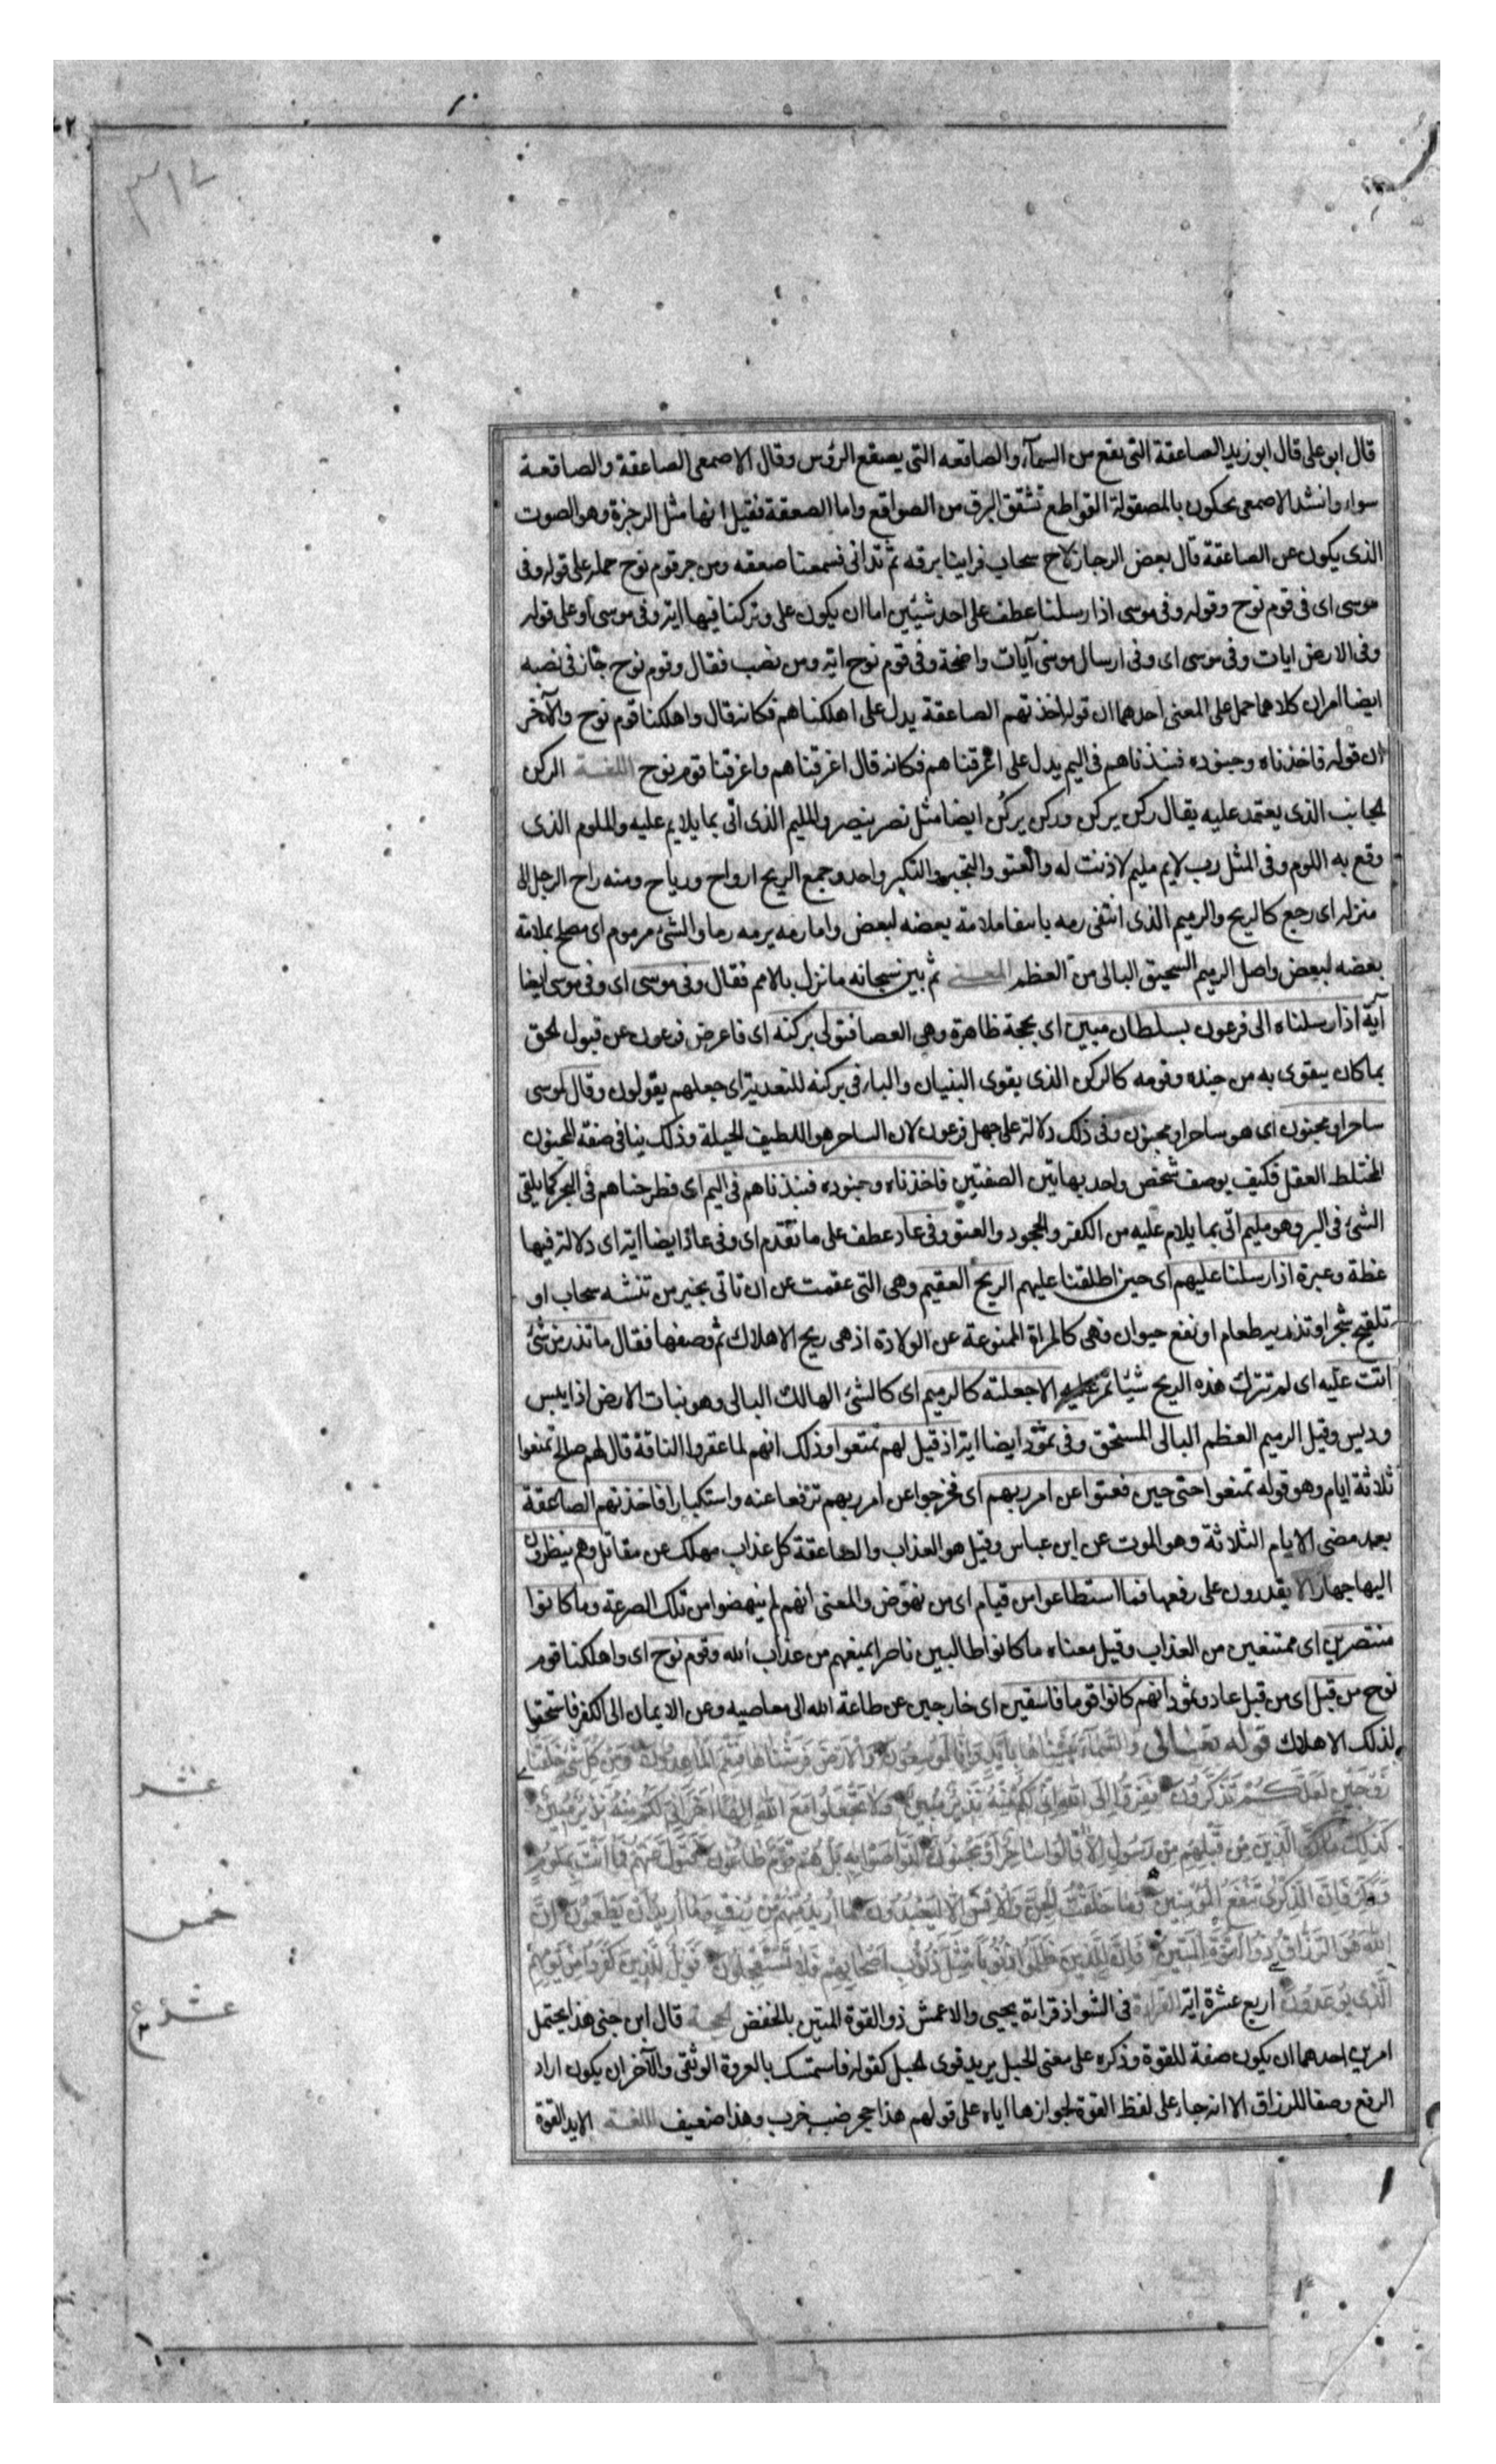 ٣١٧
قال ابو على قال ابو زيد الصاعقة التى يقع من السمآء والصاقعه التى يصقع الرؤس وقال الاصمعى الصاعقة والصاقعة
سواء وانشد الاصمعى يحكون بالمصقولة القواطع تشقق البرق من الصواقع واما الصعقة فقيل انها مثل الزجرة وهو الصوت
الذى يكون عن الصاعقة قال بعض الرجاز لاح سحاب فراينا برقه ثم تدانى فسمعنا صعقه ومن جر قوم نوح حمله على قوله وفى
موسى اى فى قوم نوح وقوله وفى موسى اذ ارسلنا عطف على احد شيئين اما ان يكون على وتركنا فيها اية وفى موسى او على قوله
وفى الارض ايات وفى موسى اى وفى ارسال موسى آيات واضحة وفى قوم نوح اية ومن نصب فقال وقوم نوح جاز فى نصبه
ايضا امران كلاهما حمل على المعنى احدهما ان قوله اخذتهم الصاعقة يدل على اهلكناهم فكانه قال واهلكنا قوم نوح والآخر
ان قوله فاخذناه وجنوده فنبذناهم فى اليم يدل على اغرقناهم فكانه قال اغرقناهم واغرقنا قوم نوح اللغة الركن
الجانب الذى يعتمد عليه يقال ركن يركن وركن يركُن ايضا مثل نصر ينصر والمليم الذى اتى بما يلايم عليه والملوم الذى
وقع به اللوم وفى المثل رب لايم مليم لا ذنب له والعتو والتجبر والتكبر واحد وجمع الريح ارواح ورياح ومنه راح الرجل الى
منزله اى رجع كالريح والرميم الذى انتفى رمه بانتفا ملامة بعضه لبعض واما رمه يرمه رما والشئ مرموم اى مصلح بملامة
بعضه لبعض واصل الرميم السحيق البالى من العظم المعنى ثم بين سبحانه ما نزل بالامم فقال وفى موسى اى وفى موسى ايضا
آية اذ ارسلناه الى فرعون بسلطان مبين اى بحجة ظاهرة وهى العصا فتولى بركنه اى فاعرض فرعون عن قبول الحق
بما كان يتقوى به من جنده وقومه كالركن الذى يقوى البنيان والبا فى بركنه للتعدية اى جعلهم يقولون وقال لموسى
ساحر او مجنون اى هو ساحر او مجنون وفى ذلك دلالة على جهل فرعون لان الساحر هو اللطيف الحيلة وذلك ينافى صفة المجنون
المختلط العقل فكيف يوصف شخص واحد بهاتين الصفتين فاخذناه وجنوده فنبذناهم فى اليم اى فطرحناهم فى البحر كما يلقى
الشئ فى البر وهو مليم اتى بما يلام عليه من الكفر والجحود والعتو وفى عاد عطف على ما تقدم اى وفى عاد ايضا اية اى دلالة فيها
عظة وعبرة اذ ارسلنا عليهم اى حين اطلقنا عليهم الريح العقيم وهى التى عقمت عن ان تاتى بخير من تنشئة سحاب او
تلقيح شجر او تذرية طعام او نفع حيوان فهى كالمراة الممنوعة عن الولادة اذ هى ريح الاهلاك ثم وصفها فقال ما تذر من شئ
اتت عليه اى لم تترك هذه الريح شيئا تمر عليه الا جعلته كالرميم اى كالشئ الهالك البالى وهو نبات الارض اذا يبس
وديس وقيل الرميم العظم البالى المستحق وفى ثمود ايضا اية اذ قيل لهم تمتعوا وذلك انهم لما عقروا الناقة قال لهم صالح تمتعوا
ثلاثة ايام وهو قوله تمتعوا حتى حين فعتوا عن امر ربهم اى فخرجوا عن امر ربهم ترفعا عنه واستكبارا فاخذتهم الصاعقة
بعد مضى الايام الثلاثة وهو الموت عن ابن عباس وقيل هو العذاب والصاعقة كل عذاب مهلك عن مقاتل وهم ينظرون
اليها جهارا لا يقدرون على رفعها فما استطاعوا من قيام اى من نهوض والمعنى انهم لم ينهضوا من تلك الصرعة وما كانوا
منتصرين اى ممتنعين من العذاب وقيل معناه ما كانوا طالبين ناصرا يمنعهم من عذاب الله وقوم نوح اى واهلكنا قوم
نوح من قبل اى من قبل عاد وثمود انهم كانوا قوما فاسقين اى خارجين عن طاعة الله الى معاصيه وعن الايمان الى الكفر فاستحقوا
لذلك الاهلاك قوله تعالى وَالسَّمَآءَ بَنَيْنَاهَا بِأَيْدٍ وَإِنَّا لَمُوسِعُونَ وَالْأَرْضَ فَرَشْنَاهَا فَنِعْمَ الْمَاهِدُونَ وَمِنْ كُلِّ شَيْءٍ خَلَقْنَا
زَوْجَيْنِ لَعَلَّكُمْ تَذَكَّرُونَ فَفِرُّوا إِلَى اللهِ إِنِّي لَكُمْ مِنْهُ نَذِيرٌ مُبِينٌ وَلَا تَجْعَلُوا مَعَ اللهِ إِلَهًا آخَرَ إِنِّي لَكُمْ مِنْهُ نَذِيرٌ مُبِينٌ
كَذَلِكَ مَا أَتَى الَّذِينَ مِنْ قَبْلِهِمْ مِنْ رَسُولٍ إِلَّا قَالُوا سَاحِرٌ أَوْ مَجْنُونٌ أَتَوَاصَوْا بِهِ بَلْ هُمْ قَوْمٌ طَاغُونَ فَتَوَلَّ عَنْهُمْ فَمَا أَنْتَ بِمَلُومٍ
وَذَكِّرْ فَإِنَّ الذِّكْرَى تَنْفَعُ الْمُؤْمِنِينَ وَمَا خَلَقْتُ الْجِنَّ وَالْإِنْسَ إِلَّا لِيَعْبُدُونِ مَا أُرِيدُ مِنْهُمْ مِنْ رِزْقٍ وَمَا أُرِيدُ أَنْ يُطْعِمُونِ إِنَّ
اللهَ هُوَ الرَّزَّاقُ ذُو الْقُوَّةِ الْمَتِينُ فَإِنَّ لِلَّذِينَ ظَلَمُوا ذَنُوبًا مِثْلَ ذَنُوبِ أَصْحَابِهِمْ فَلَا يَسْتَعْجِلُونِ فَوَيْلٌ لِلَّذِينَ كَفَرُوا مِنْ يَوْمِهِمُ
الَّذِي يُوعَدُونَ اربع عشرة اية القراءة فى الشواذ قراءة يحيى والاعمش ذو القوة المتين بالخفض الحجة قال ابن جنى هذا يحتمل
امرين احدهما ان يكون صفة للقوة وذكره على معنى الحبل يريد قوى الحبل كقوله فاستمسك بالعروة الوثقى والآخر ان يكون اراد
الرفع وصفا للرزاق الا انه جاء على لفظ القوة لجوازها اياه على قولهم هذا جحر ضب خرب وهذا ضعيف اللغة الايد القوة
عشر
خمس
عشر ع